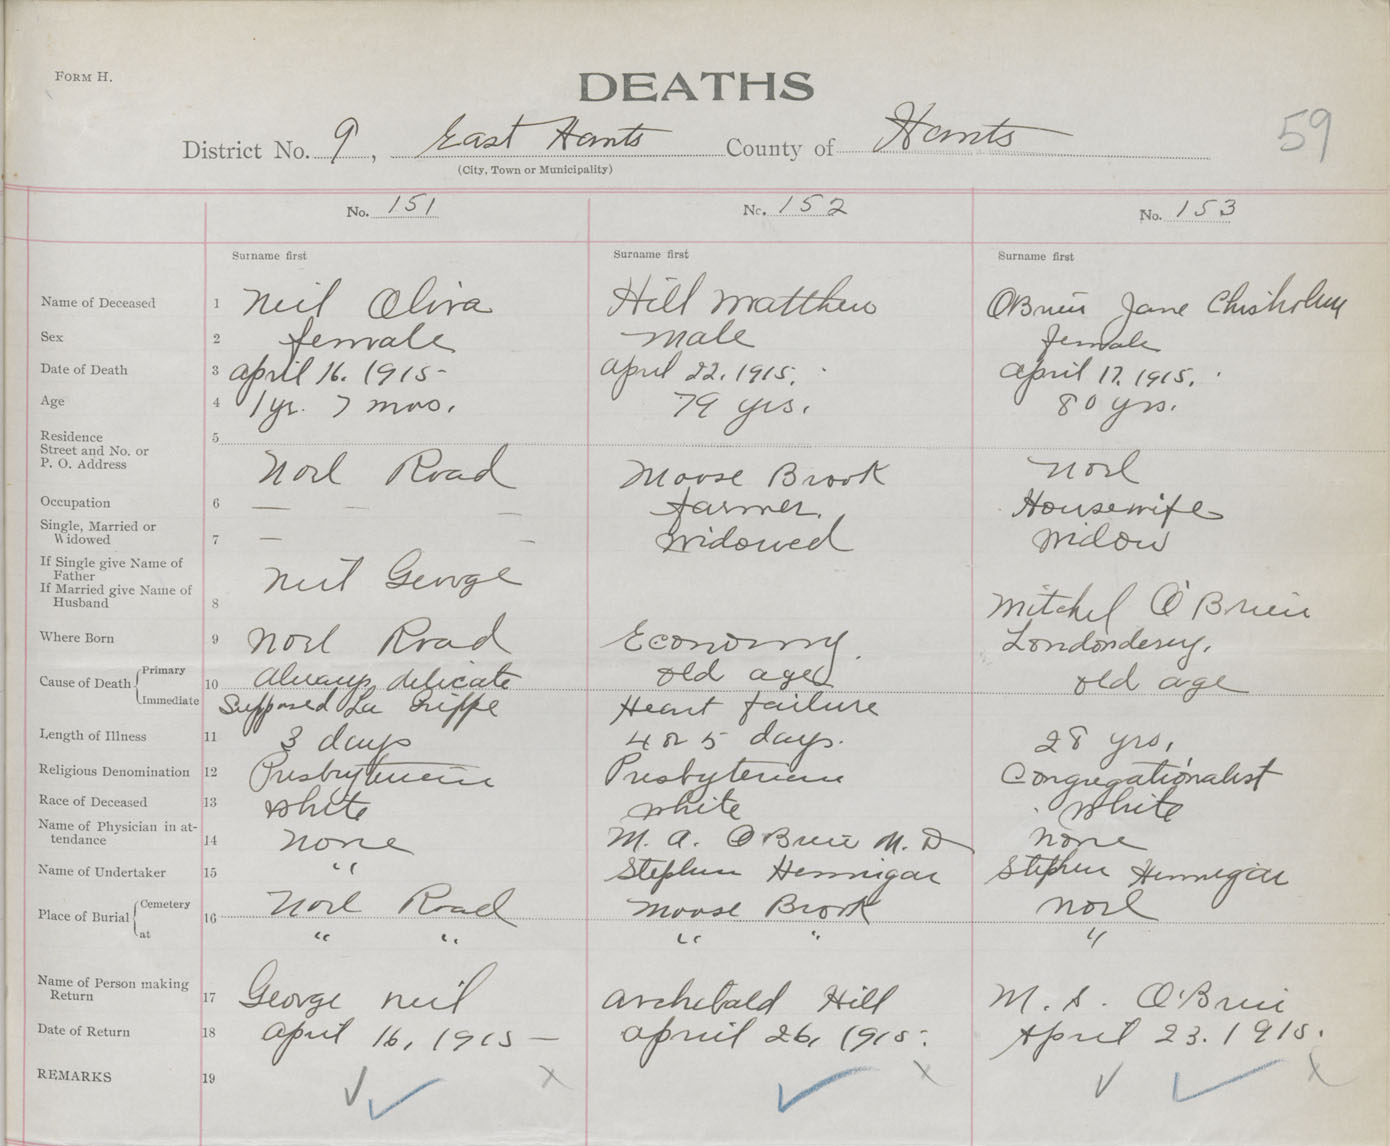 FORM H.
DEATHS
59
District No. 9, East Hants County of Hants
(City, Town or Municipality)
No. 151 No. 152 No. 153
Surname first Surname first Surname first
Name of Deceased 1 Neil Oliva Hill Matthew O'Brien Jane Chisholm
Sex 2 female male female
Date of Death 3 april 16. 1915 April 22. 1915. april 17. 1915.
Age 4 1 yr. 7 mos. 79 yrs. 80 yrs.
Residence 5
Street and No. or
P. O. Address Noel Road Moose Brook Noel
Occupation 6 — — — farmer. Housewife
Single, Married or
Widowed 7 — — widowed widow
If Single give Name of
Father Neil George
If Married give Name of
Husband 8 Mitchel O'Brien
Where Born 9 Noel Road Economy. Londonderry.
Cause of Death { Primary 10 always delicate old age old age
Immediate Supposed La Grippe Heart failure
Length of Illness 11 3 days 4 or 5 days. 28 yrs.
Religious Denomination 12 Presbyterian Presbyterian Congregationalist
Race of Deceased 13 white white white
Name of Physician in at-
tendance 14 none M. A. O'Brien M. D none
Name of Undertaker 15 " Stephen Hennigar Stephen Hennigar
Place of Burial { Cemetery 16 Noel Road Moose Brook Noel
at " " " " "
Name of Person making
Return 17 George Neil Archebald Hill M. S. O'Brien
Date of Return 18 april 16, 1915 — april 26, 1915. April 23. 1915.
REMARKS 19 ✓ ✓ x ✓ x ✓ ✓ x